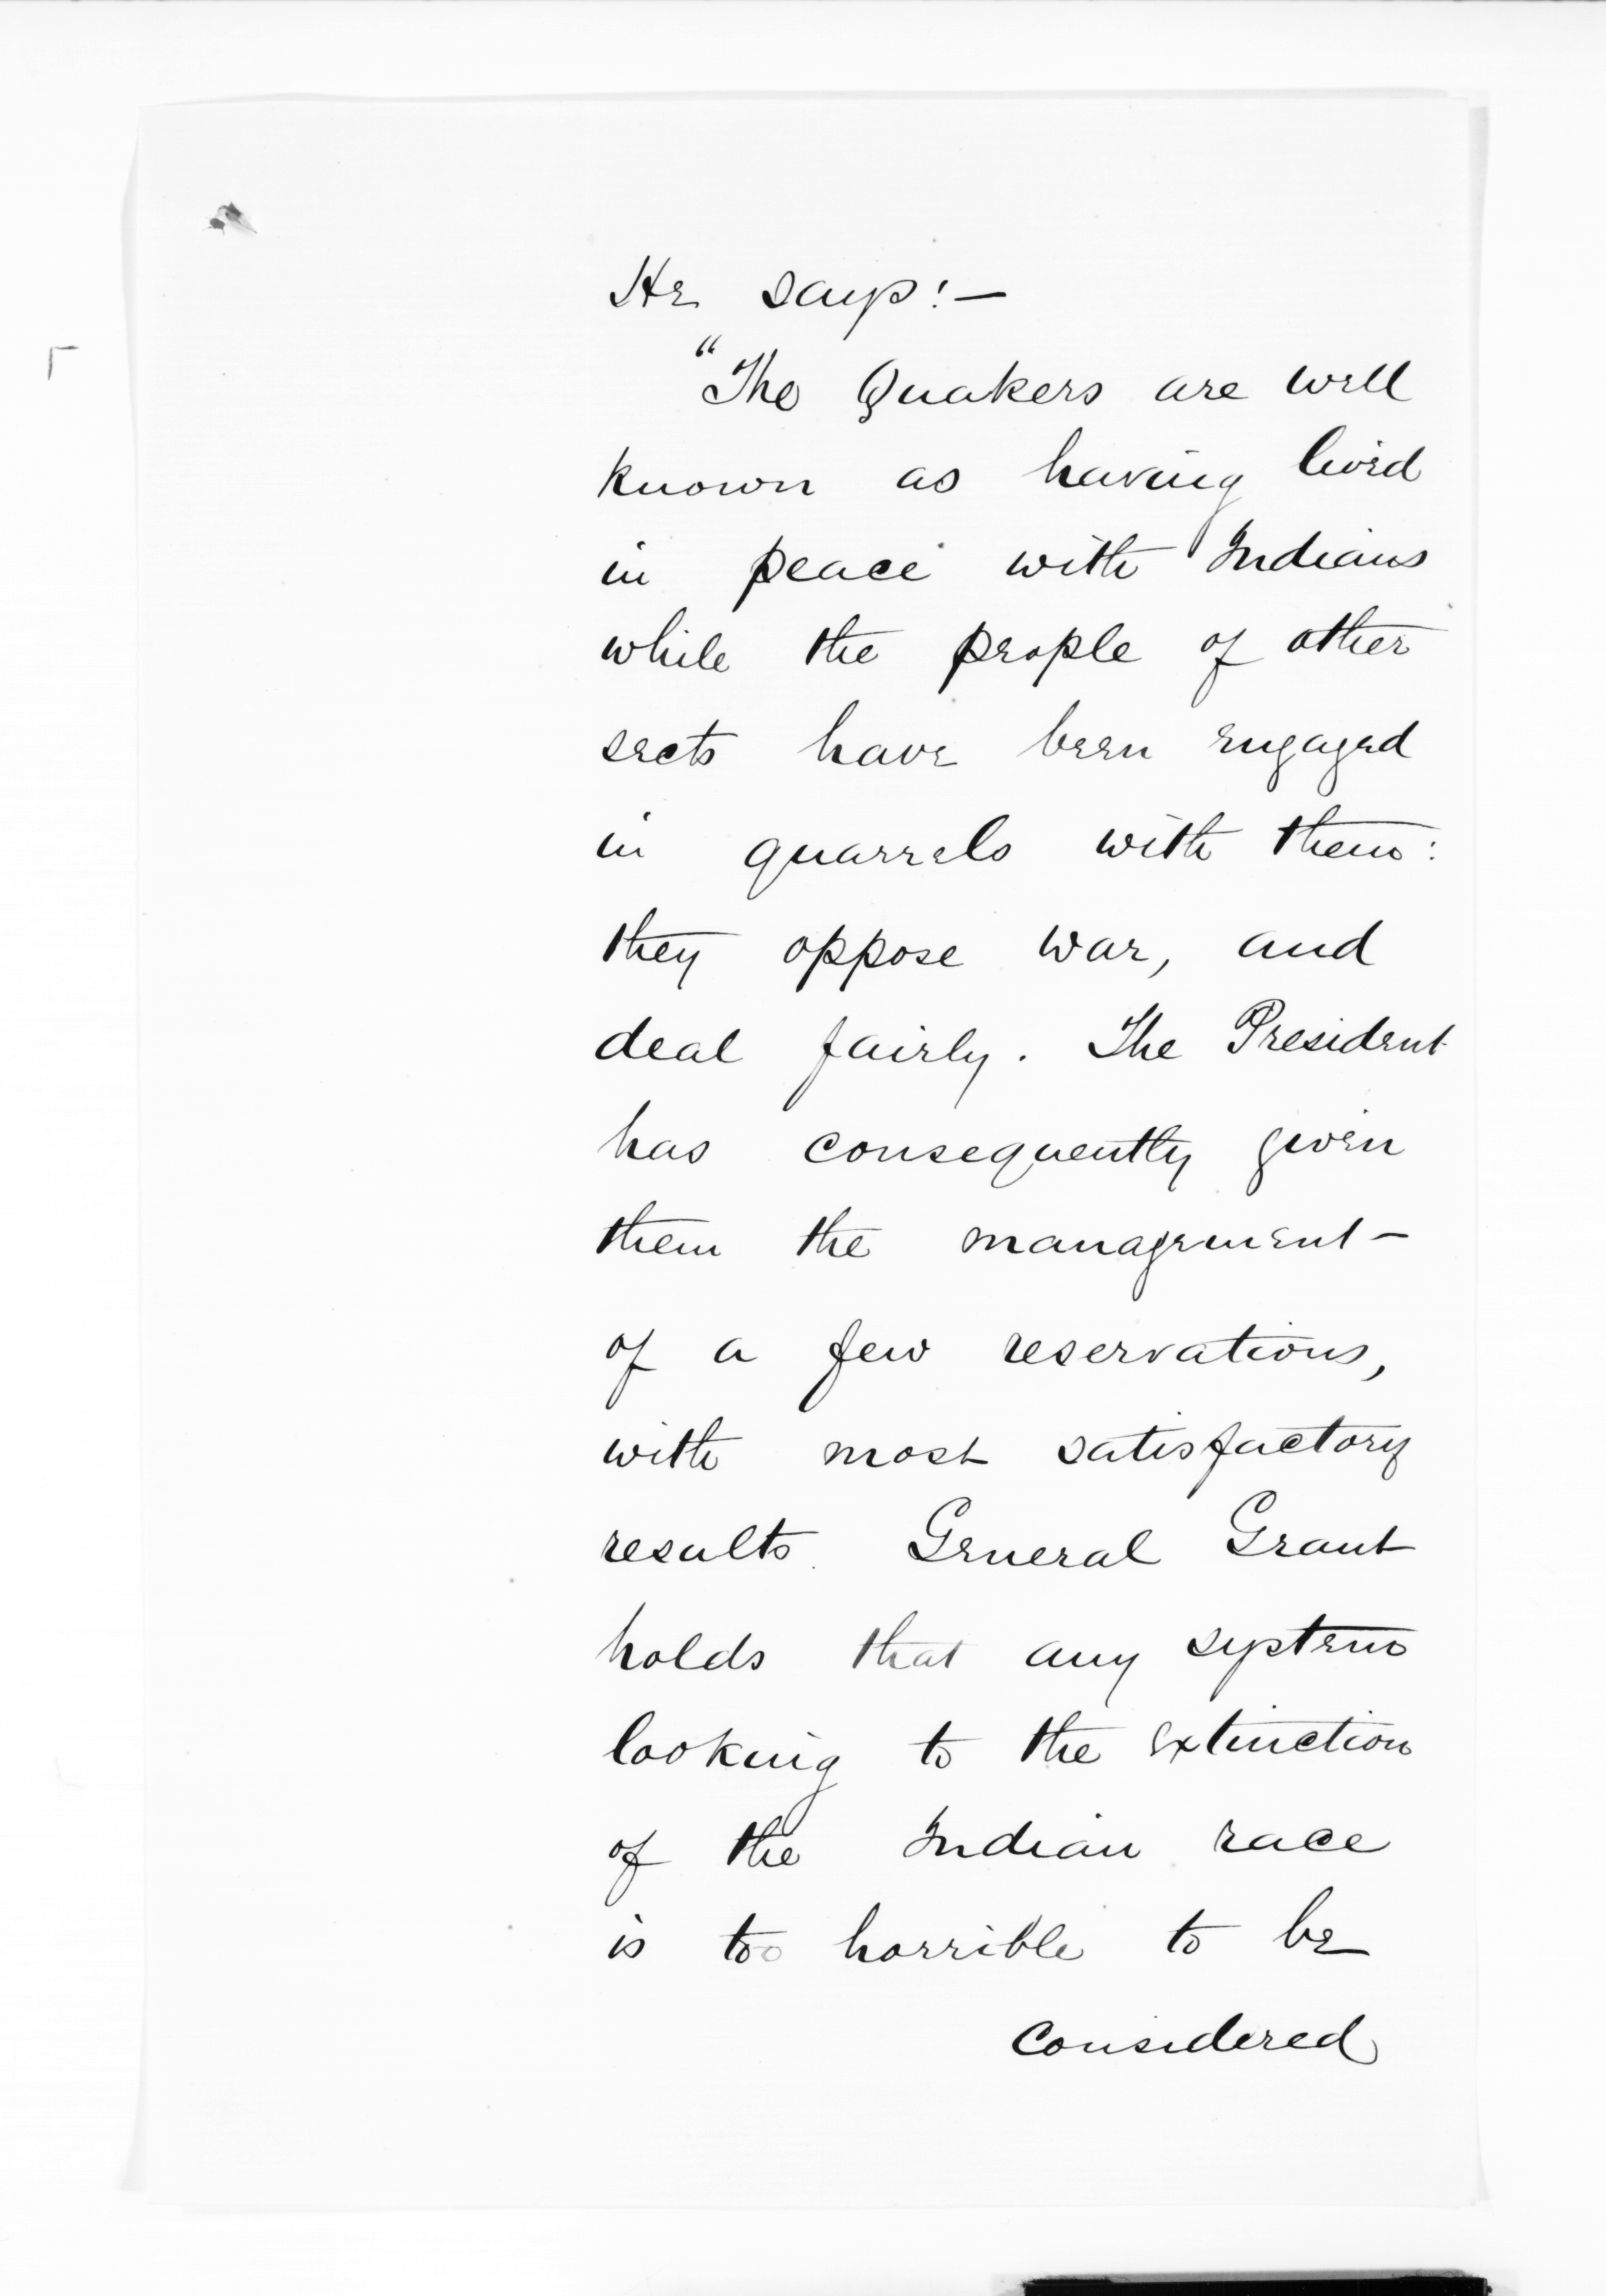 He says:—
"The Quakers are well
known as having lived
in peace with Indians
while the people of other
sects have been engaged
in quarrels with them:
they oppose war, and
deal fairly. The President
has consequently given
them the management—
of a few reservations,
with most satisfactory
results. General Grant
holds that any system
looking to the extinction
of the Indian race
is too horrible to be
considered